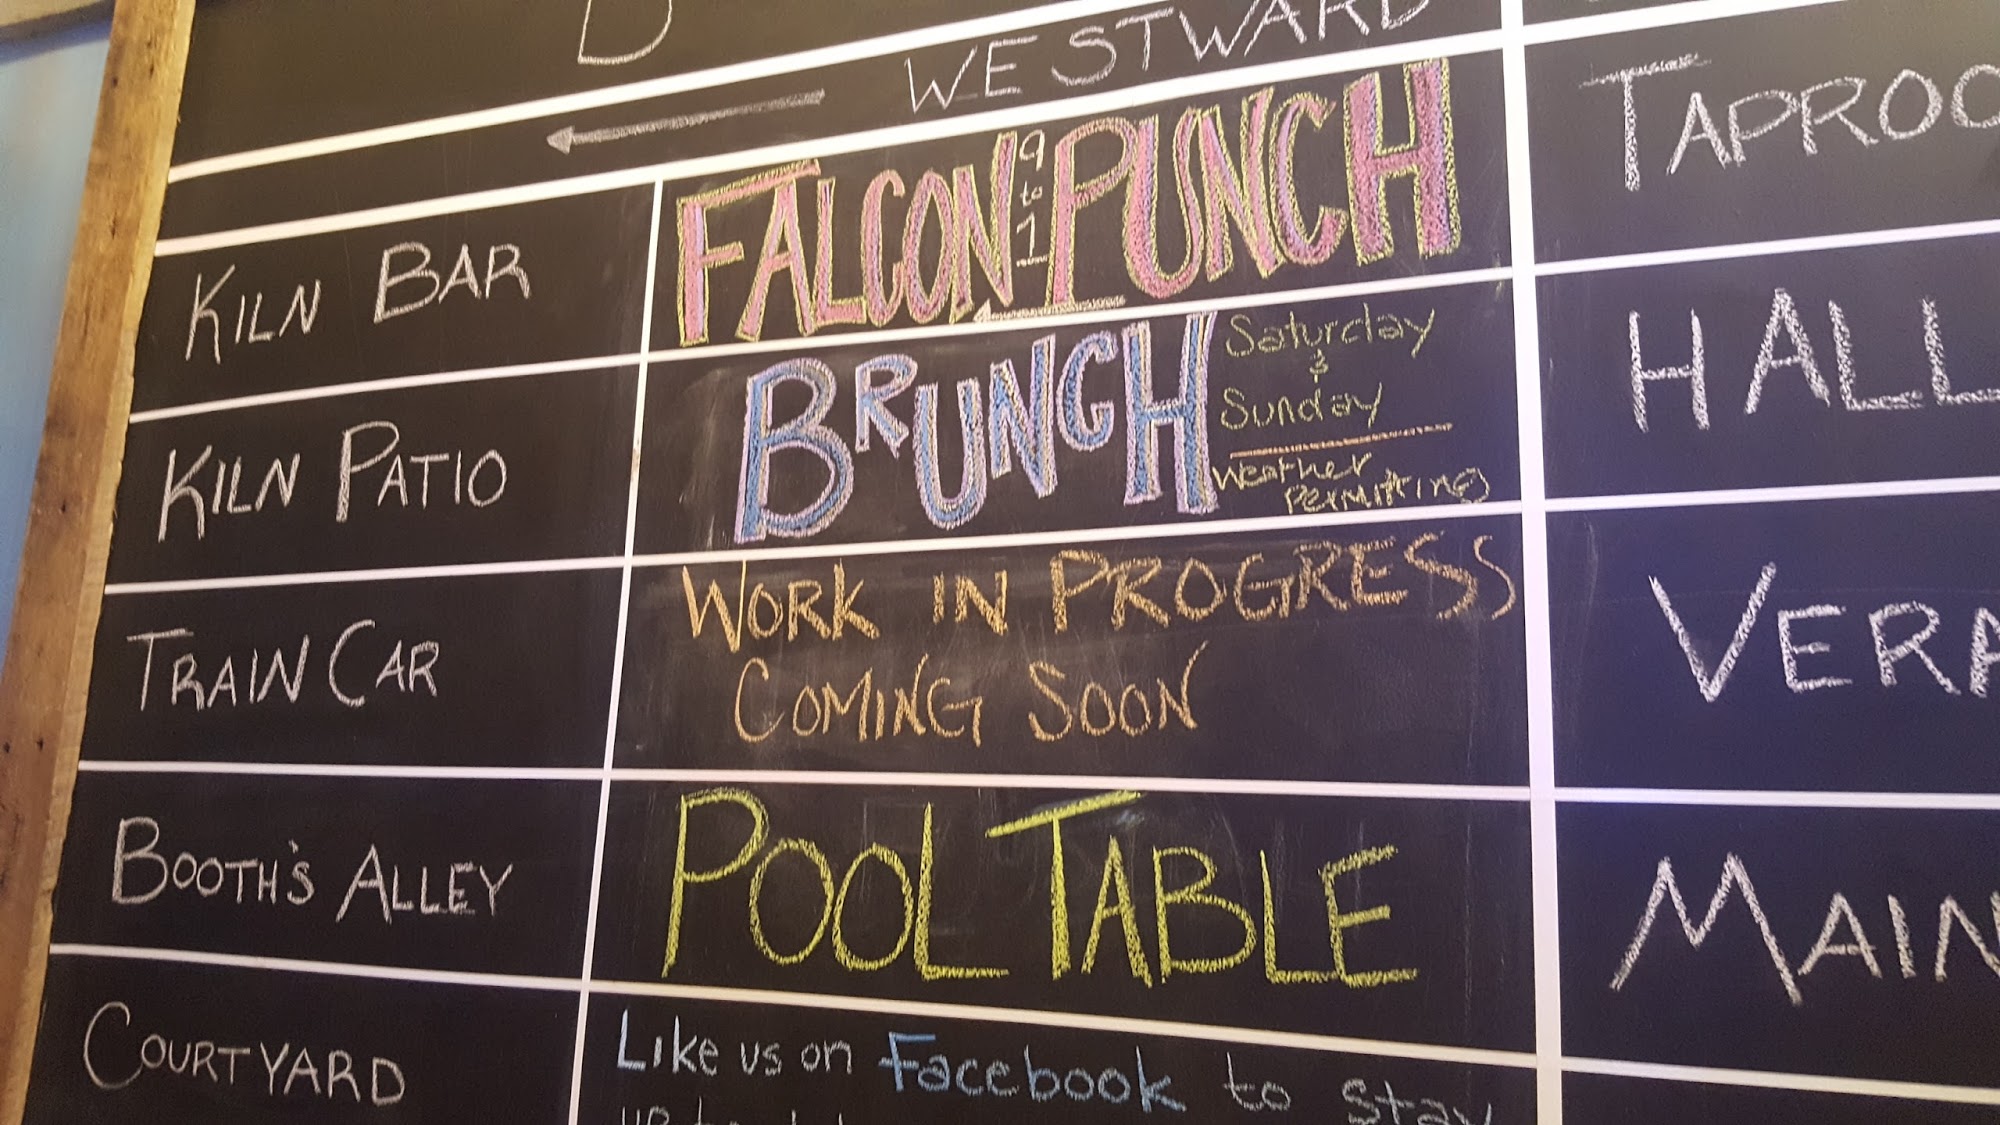 WESTWARD
KILN BAR
FALCON PUNCH
9 to 1
KILN PATIO
BRUNCH
Saturday
&
Sunday
Weather
Permitting
TRAIN CAR
WORK IN PROGRESS
COMING SOON
BOOTH'S ALLEY
POOL TABLE
COURTYARD
Like us on Facebook to stay
TAPROO
HALL
VERA
MAIN